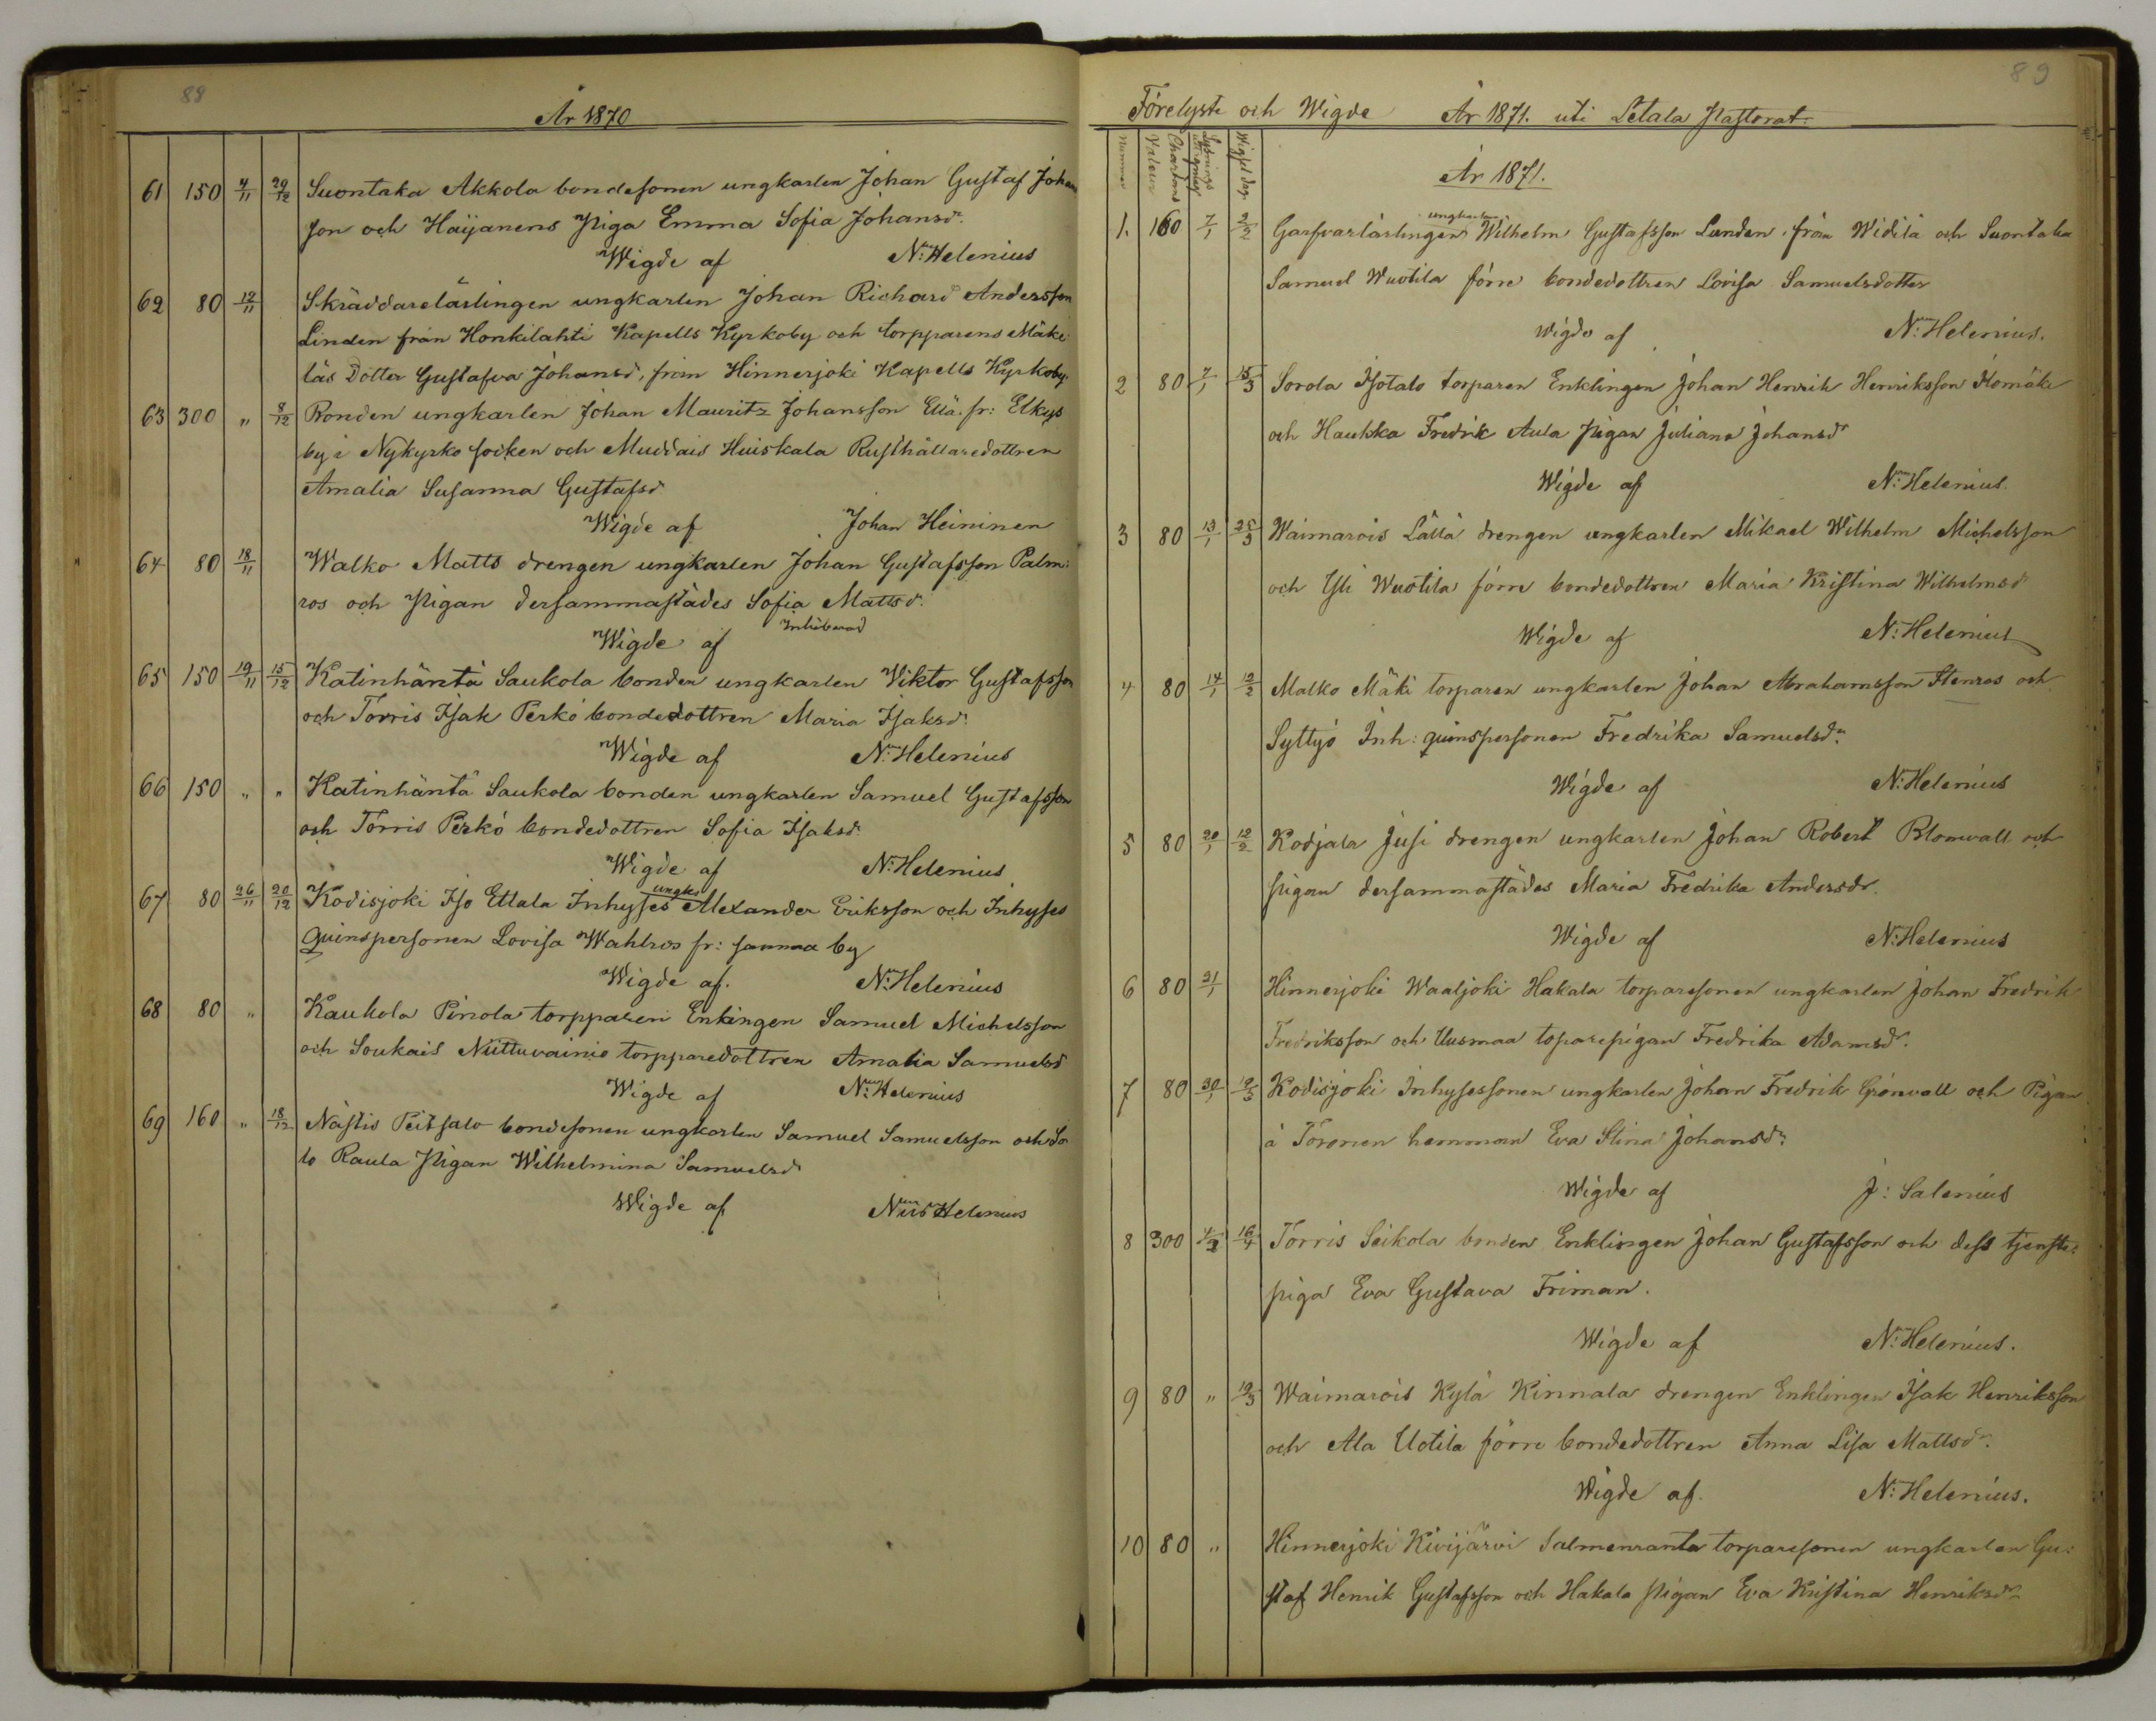 88
År 1870
61 150 4/11 29/12 Suontaka Akkola bondesonen ungkarlen Johan Gustaf Johans
son och Haijanens Piga Emma Sofia Johansdr.
Wigde af N: Helenius
62 80 12/11 Skräddarelärlingen ungkarlen Johan Richard Andersson
Linden från Honkilahti Kapells Kyrkoby och torpparens Mäke
läs Dotter Gustafva Johansd, från Hinnerjoki Kapells Kyrkoby.
63 300 " 8/12 Bonden ungkarlen Johan Mauritz Johansson Ellä. fr: Elkys
by i Nykyrko socken och Muddais Huiskala Rusthållaredottren
Amalia Susanna Gustafsd
Wigde af Johan Heininen
64 80 18/11 Walko Matts drengen ungkarlen Johan Gustafsson Palm:
ros och Pigan dersammastädes Sofia Mattsd.
Wigde af Inhiberad
65 150 19/11 15/12 Katinhäntä Saukola bonden ungkarlen Viktor Gustafsson
och Torris Isak Perkö bondedottren Maria Isaksd:
Wigde af N: Helenius
66 150 " " Katinhäntä Saukola bonden ungkarlen Samuel Gustafsson
och Torris Perkö bondedottren Sofia Isaksd:
Wigde af N: Helenius
67 80 26/11 20/12 Kodisjoki Iso Ettala Inhyses ungk: Alexander Eriksson och Inhyses
Quinspersonen Lovisa Wahlros fr: samma by
Wigde af. N: Helenius
68 80 " Kaukola Pirola torpparen Enkingen Samuel Michelsson
och Soukais Niittuvainio torpparedottren Amalia Samuelsd
Wigde af N: Helenius
69 160 " 18/12 Nästis Peitsalo bondesonen ungkarlen Samuel Samuelsson och So
lo Raula Pigan Wilhelmina Samuelsd
Wigde af Nils Helenius
89
Förelyste och Wigde År 1871. uti Letala Pastorat.
Nummer
Valeur Chartans
Lysnings
Wigsel dag
År 1871.
1. 160 7/1 2/2 Garfvarlärlingen ungkarlen Wilhelm Gustafsson Lunden, från Widilä och Suontaka
Samuel Wuotila förre bondedottren Lovisa Samuelsdotter
Wigde af N: Helenius.
2 80 7/1 15/3 Sorola Isotalo torparen Enklingen Johan Henrik Henriksson Isomäki
och Haukka Fredrik Aula Pigan Juliana Johansdr
Wigde af N: Helenius.
3 80 13/1 25/3 Waimarois Lällä drengen ungkarlen Mikael Wilhelm Michelsson
och Yli Wuotila förre bondedottren Maria Kristina Wilhelmsd
Wigde af N: Helenius
4 80 14/1 12/2 Malko Mäki torparen ungkarlen Johan Abrahamsson Stenros och
Syttyö Inh: quinspersonen Fredrika Samuelsdr:
Wigde af N: Helenius
5 80 20/1 12/2 Kodjala Jusi drengen ungkarlen Johan Robert Blomvall och
Pigan dersammastädes Maria Fredrika Andersdr.
Wigde af N: Helenius
6 80 21/1 Hinnerjoki Waaljoki Hakala torparesonen ungkarlen Johan Fredrik
Fredriksson och Uusmaa toparepigan Fredrika Adamsdr.
7 80 30/1 12/3 Kodisjoki Inhysessonen ungkarlen Johan Fredrik Grönvall och Pigan
å Toronen hemman Eva Stina Johansdr:
Wigde af J: Salenius
8 300 4/2 16/4 Torris Seikola bonden Enklingen Johan Gustafsson och dess tjenste:
piga Eva Gustava Friman.
Wigde af N: Helenius.
9 80 " 12/3 Waimarois Kylä Kinnala drengen Enklingen Isak Henriksson
och Ala Uotila förre bondedottren Anna Lisa Mattsdr.
Wigde af. N: Helenius.
10 80 " Hinnerjoki Kivijärvi Salmenranta torparesonen ungkarlen Gu:
staf Henrik Gustafsson och Hakala Pigan Eva Kristina Henriksdr